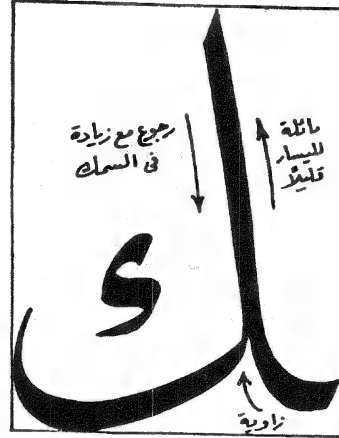 مائلة
لليسار
قليلاً
رجوع مع زيادة
فى السمك
لك
زاوية